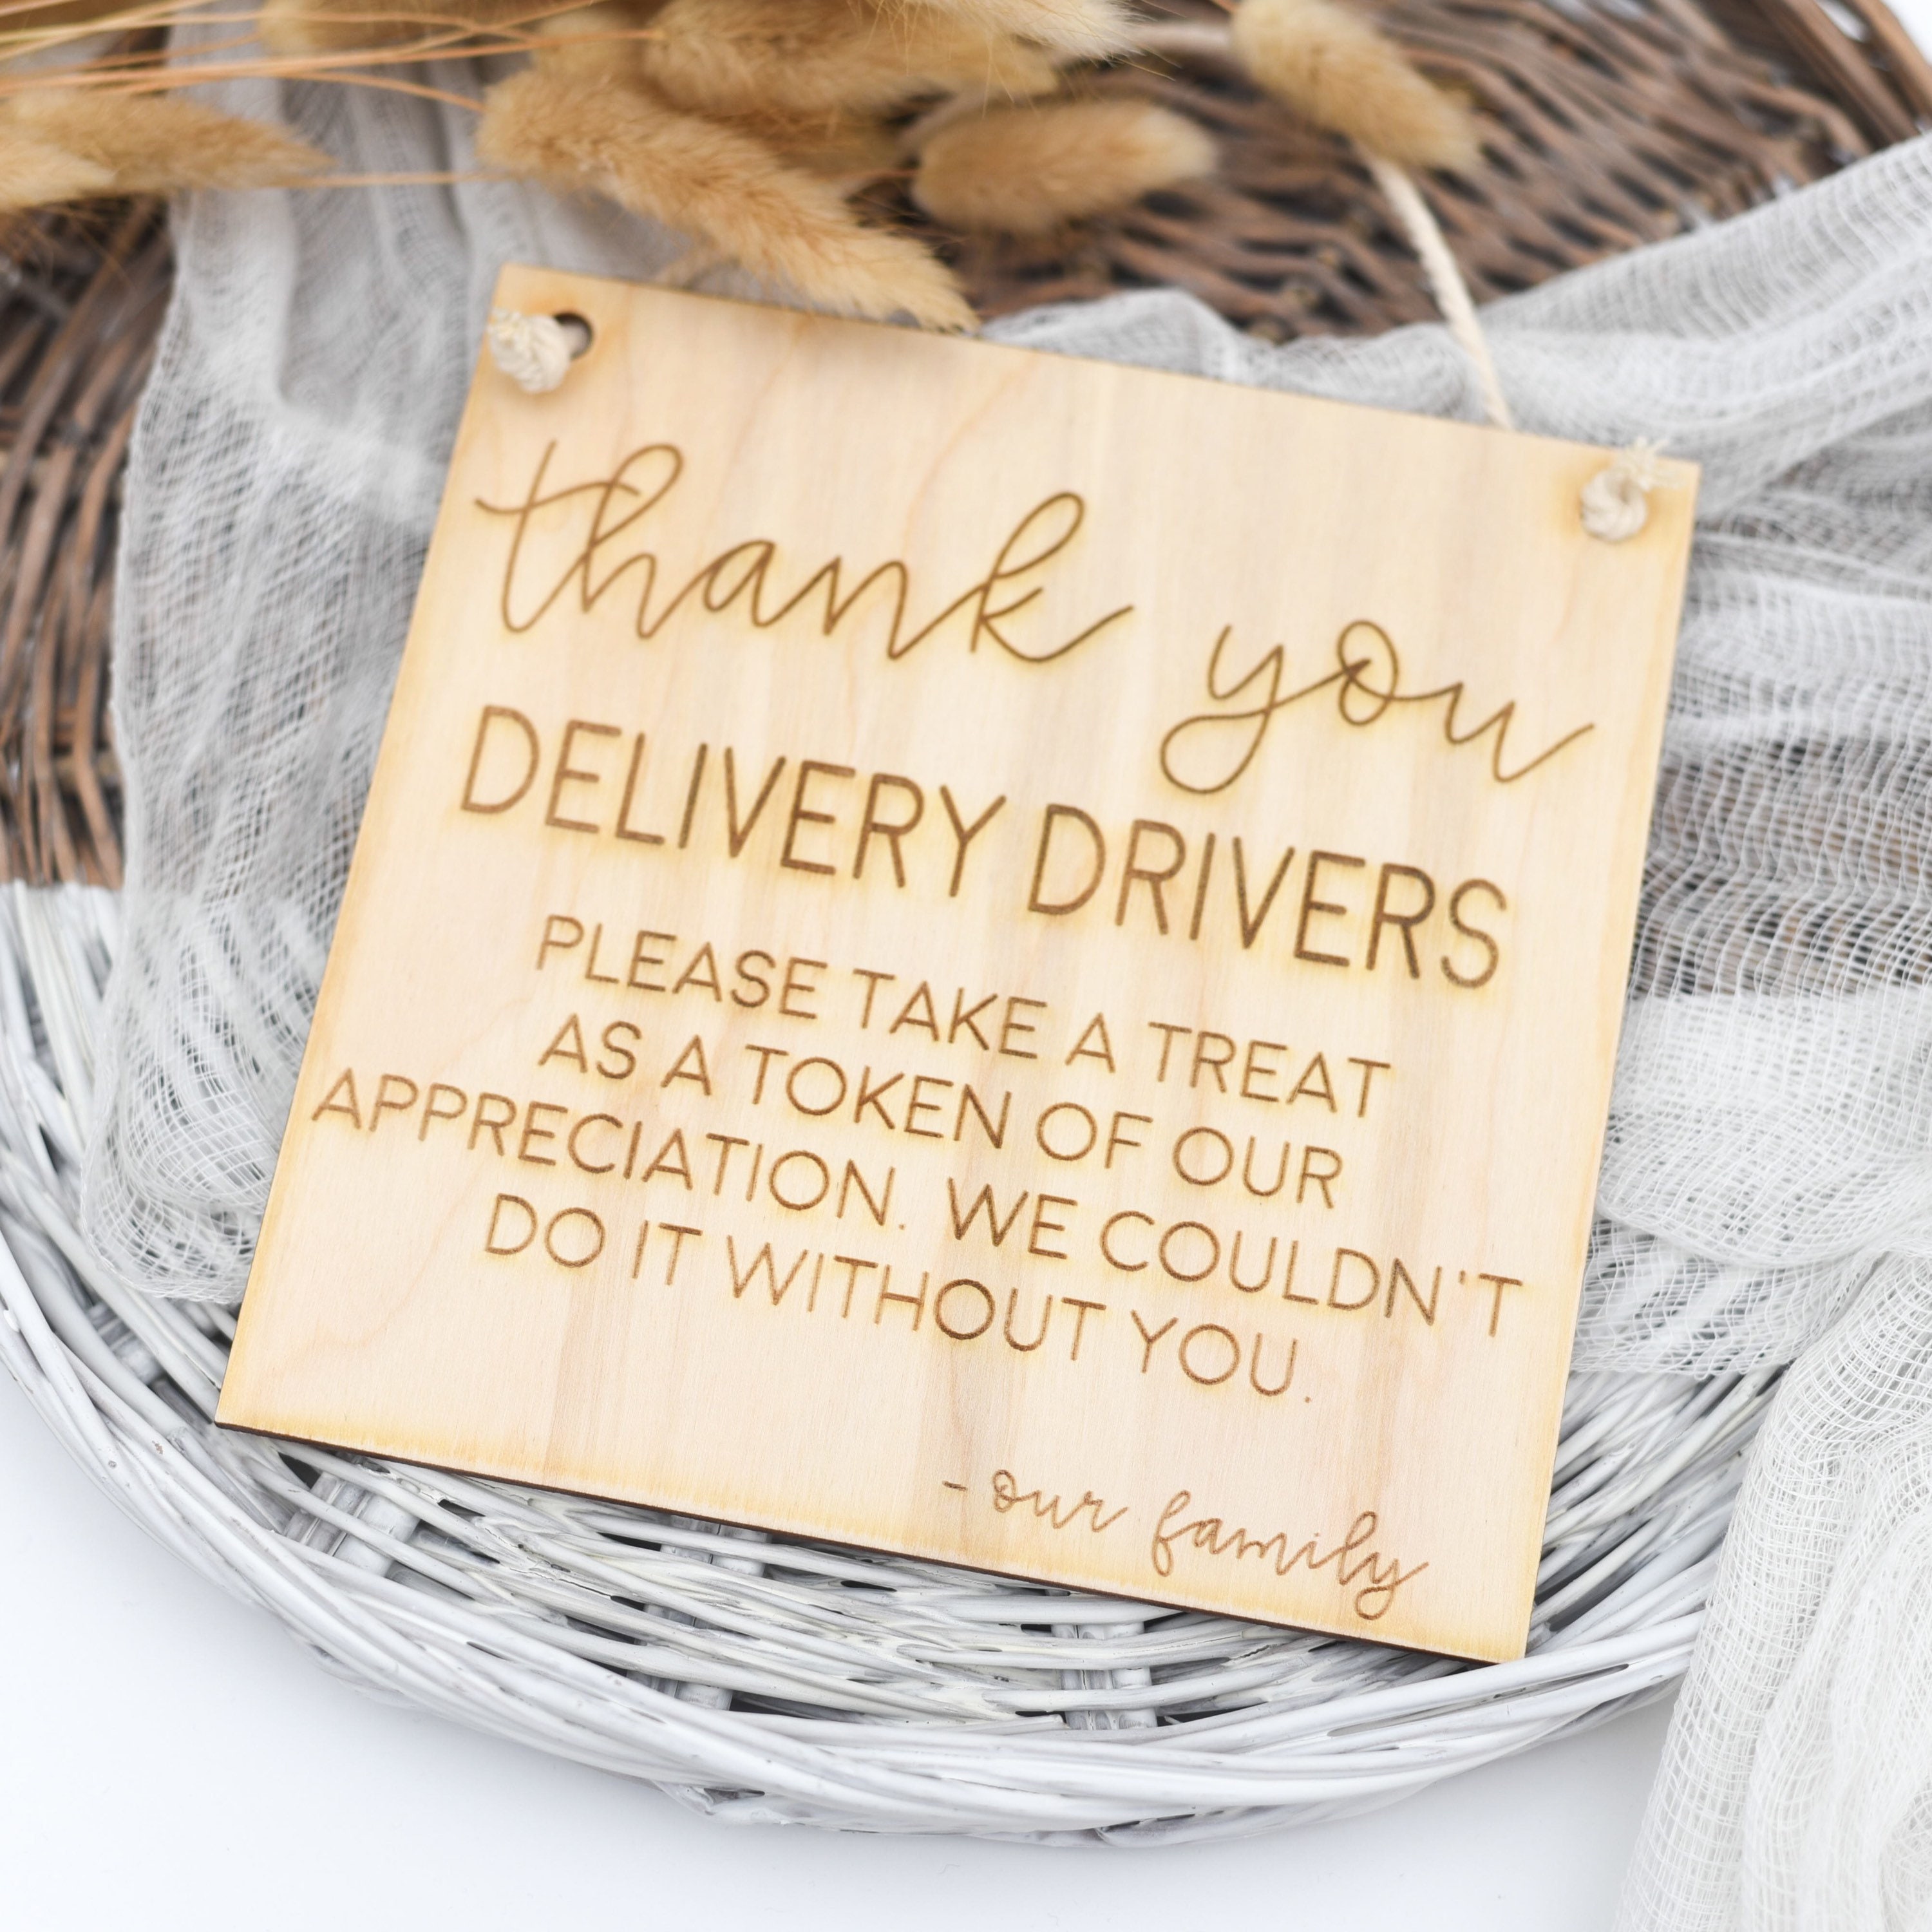 thank you
DELIVERY DRIVERS
PLEASE TAKE A TREAT
AS A TOKEN OF OUR
APPRECIATION. WE COULDN'T
DO IT WITHOUT YOU.
-our family